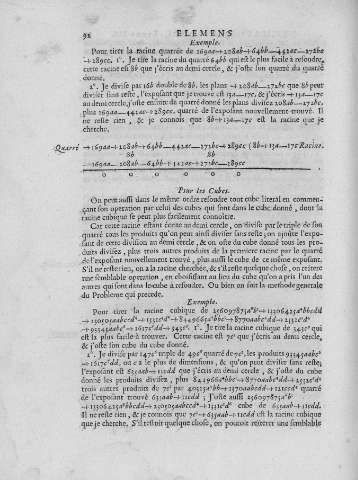 92 ELEMENS
Exemple.
Pour tirer la racine quarrée de 169aa + 208ab + 64bb — 442ac — 272bc
+ 289cc. 1°. Je tire la racine du quarré 64bb qui est le plus facile à resoudre,
cette racine est 8b que j'écris au demi cercle, & j'oste son quarré du quarré
donné.
2°. Je divise par 16b double de 8b, les plans + 208ab — 272bc que 8b peut
diviser sans reste, l'exposant que je trouve est 13a — 17c, & j'écris + 13a — 17c
au demi cercle, j'oste ensuite du quarré donné les plans divisez 208ab — 272bc,
plus 169aa — 442ac + 289cc, quarré de l'exposant nouvellement trouvé. Il
ne reste rien, & je connois que 8b + 13a — 17c est la racine que je
cherche.
Quarré + 169aa + 208ab + 64bb — 442ac — 272bc + 289cc (8b + 13a — 17c Racine.
8b 8b
— 169aa — 208ab — 64bb + 442ac + 272bc — 289cc
0 0 0 0 0 0
Pour les Cubes.
On peut aussi dans le même ordre resoudre tout cube literal en commen-
çant son operation par celui des cubes qui sont dans le cube donné, dont la
racine cubique se peut plus facilement connoître.
Car cette racine estant écrite au demi cercle, on divise par le triple de son
quarré tous les produits qu'on peut ainsi diviser sans reste, on ajoûte l'expo-
sant de cette division au demi cercle, & on oste du cube donné tous les pro-
duits divisez, plus trois autres produits de la premiere racine par le quarré
de l'exposant nouvellement trouvé, plus aussi le cube de ce même exposant.
S'il ne reste rien, on a la racine cherchée, & s'il reste quelque chose, on reïtere
une semblable operation, en choisissant au lieu du cube qu'on a pris l'un des
autres qui sont dans le cube à resoudre. Ou bien on suit la methode generale
du Probleme qui precede.
Exemple.
Pour tirer la racine cubique de
1°. Je tire la racine cubique de 343c⁶ qui
est la plus facile à trouver. Cette racine est 7c² que j'écris au demi cercle,
& j'oste son cube du cube donné.
2°. Je divise par 147c⁴ triple de 49c⁴ quarré de 7c², les produits
où c a le plus de dimensions, & qu'on peut diviser sans reste,
l'exposant est 635aab + 11cdd que j'écris au demi cercle, & j'oste du cube
donné les produits divisez, plus
trois autres produits de 7c² par quarré
de l'exposant trouvé 635aab + 11cdd; j'oste aussi
cube de 635aab + 11cdd.
Il ne reste rien, & je connois que 7c² + 635aab + 11cdd est la racine cubique
que je cherche. S'il restoit quelque chose, on pouroit reïterer une semblable